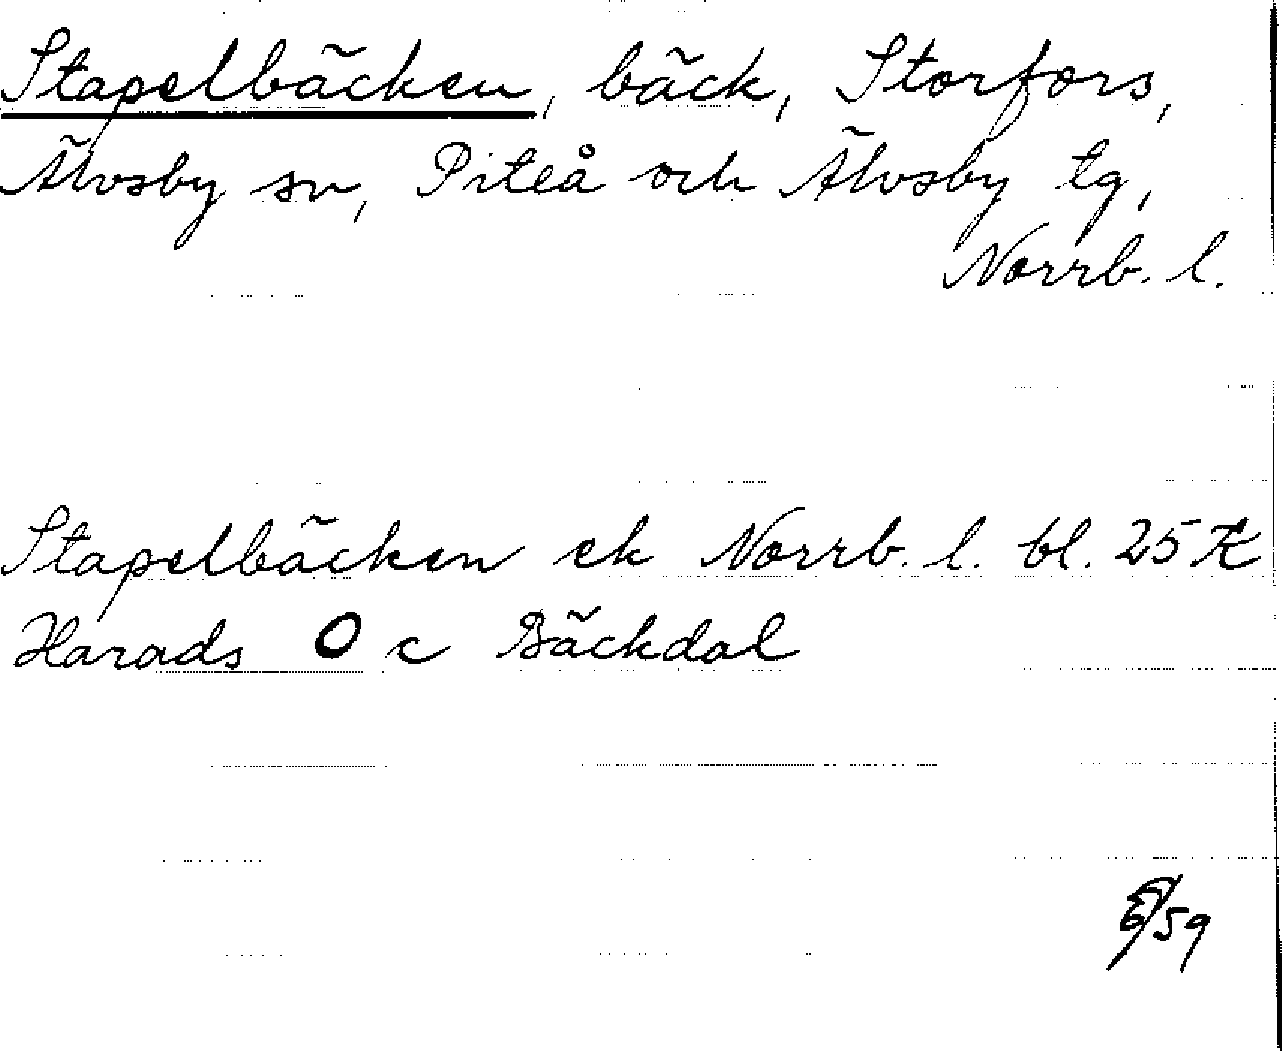 Stapelbäcken, bäck, Storfors,
Älvsby sn, Piteå och Älvsby tg,
Norrb. l.
Stapelbäcken ek Norrb. l. bl. 25 K
Harads O c Bäckdal